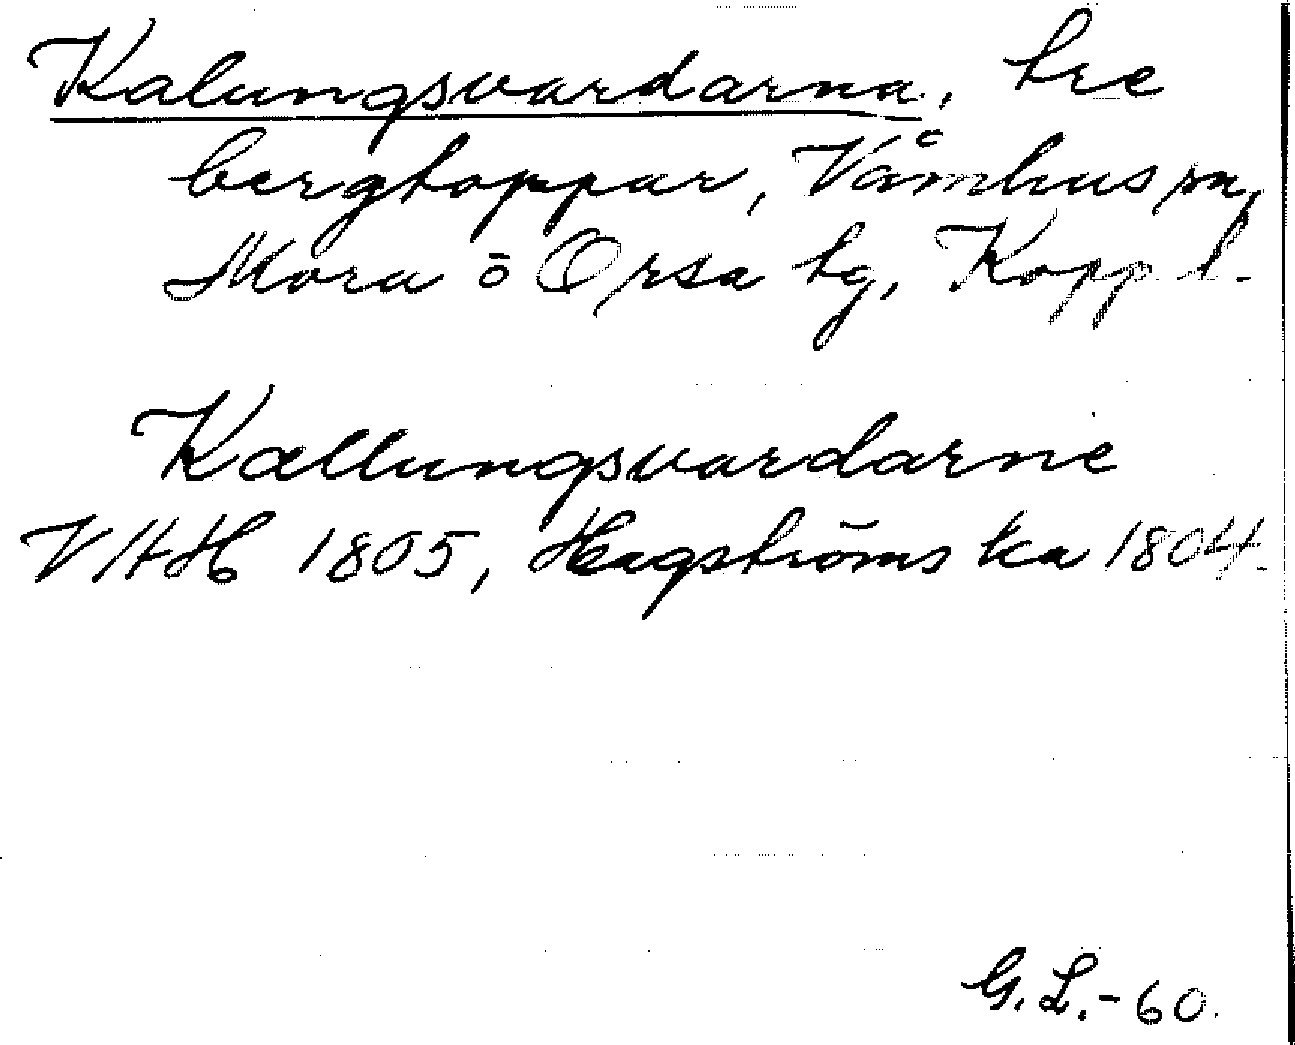 Kalungsvardarna, tre
bergtoppar, Våmhus sn,
Mora o Orsa tg, Kopp l.
Kallungsvardarne
VHH 1805, Hagströms ka 1804.
G.L.-60.